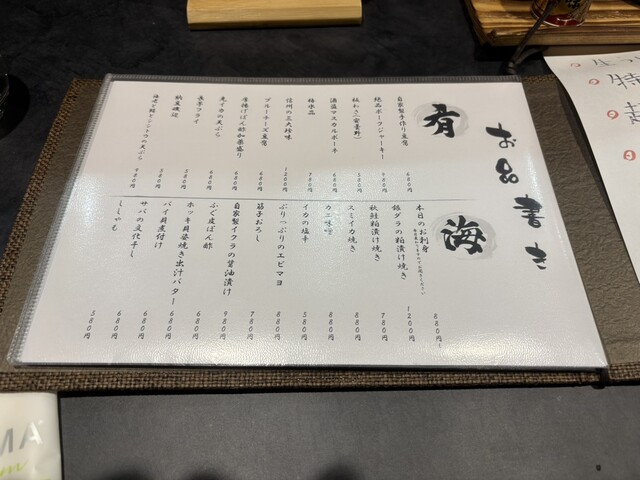 お品書き
肴
自家製手作り豆腐 680円
絶品ポークジャーキー 980円
板わさ(安曇野) 580円
濃厚マスカルポーネ 680円
棒水晶 780円
信州の三大珍味 1200円
ブルーチーズ豆腐 680円
唐揚げぽん酢和風盛り 680円
生イカの天ぷら 680円
長芋フライ 580円
鯛豆磯辺 580円
980円
海
本日のお刺身 880円~
銀ダラの粕漬け焼き 1200円
秋鮭粕漬け焼き 780円
スミイカ焼き 880円
カニ味噌 880円
イカの塩辛 580円
ぷりっぷりのエビマヨ 880円
筋子おろし 780円
自家製イクラの醤油漬け 980円
ふぐ皮ぽん酢 680円
ホッキ貝姿焼き出汁バター 780円
バイ貝煮付け 680円
サバの文化干し 680円
ししゃも 580円
特